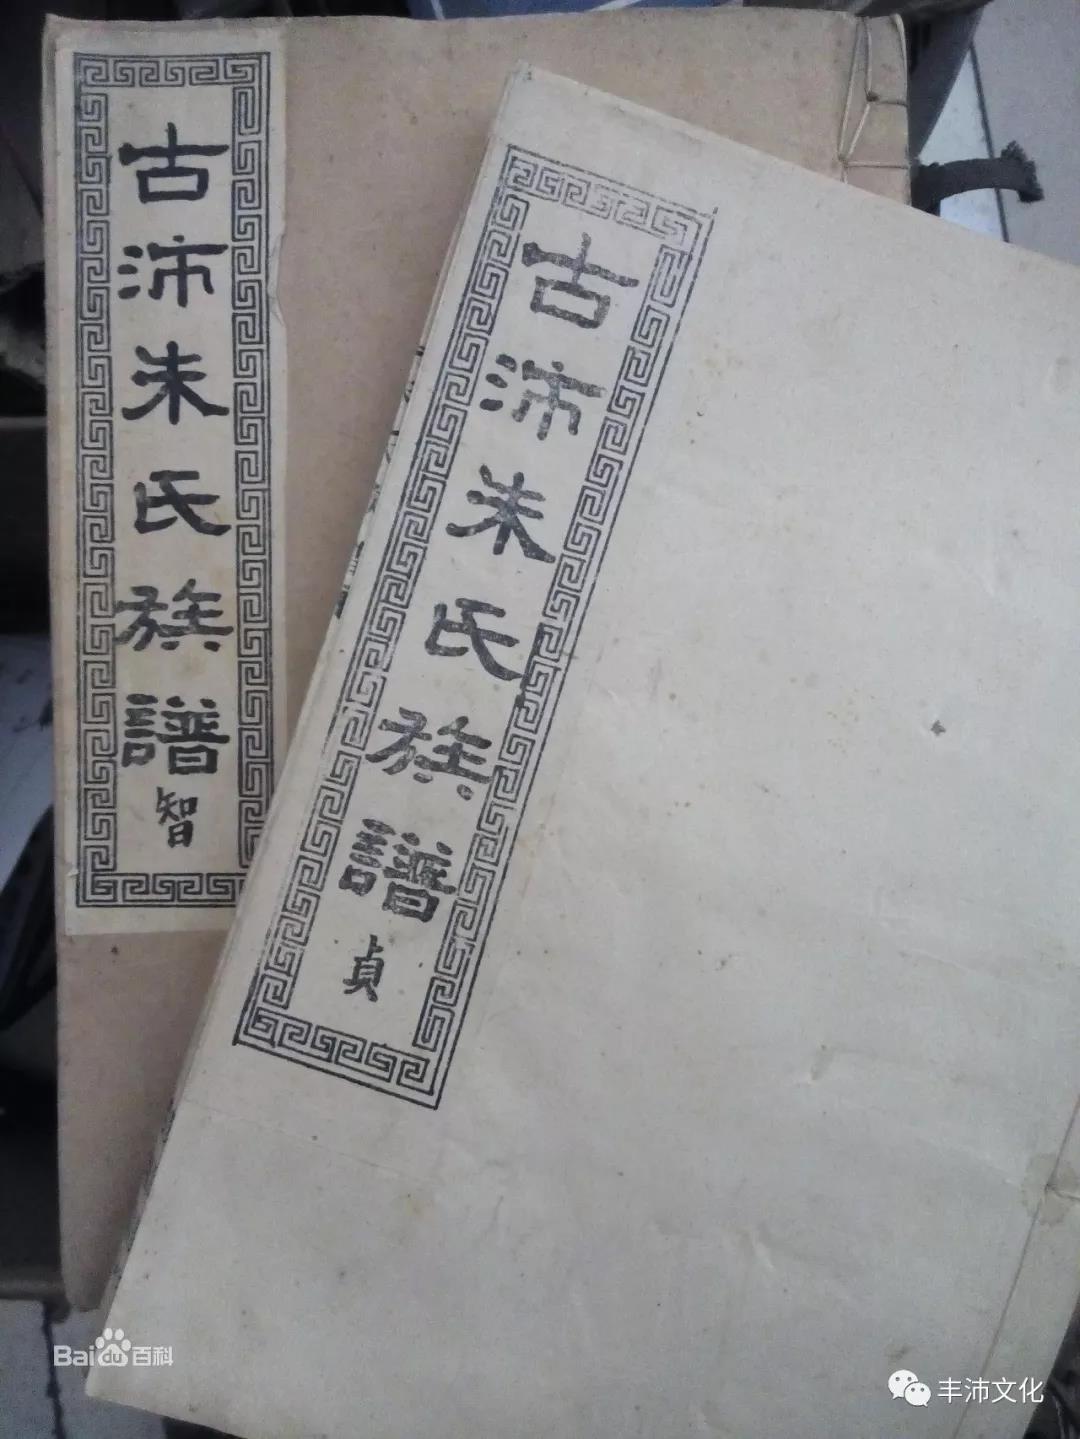 古沛朱氏族譜
智
古沛朱氏族譜
貞
Bai du 百科
丰沛文化